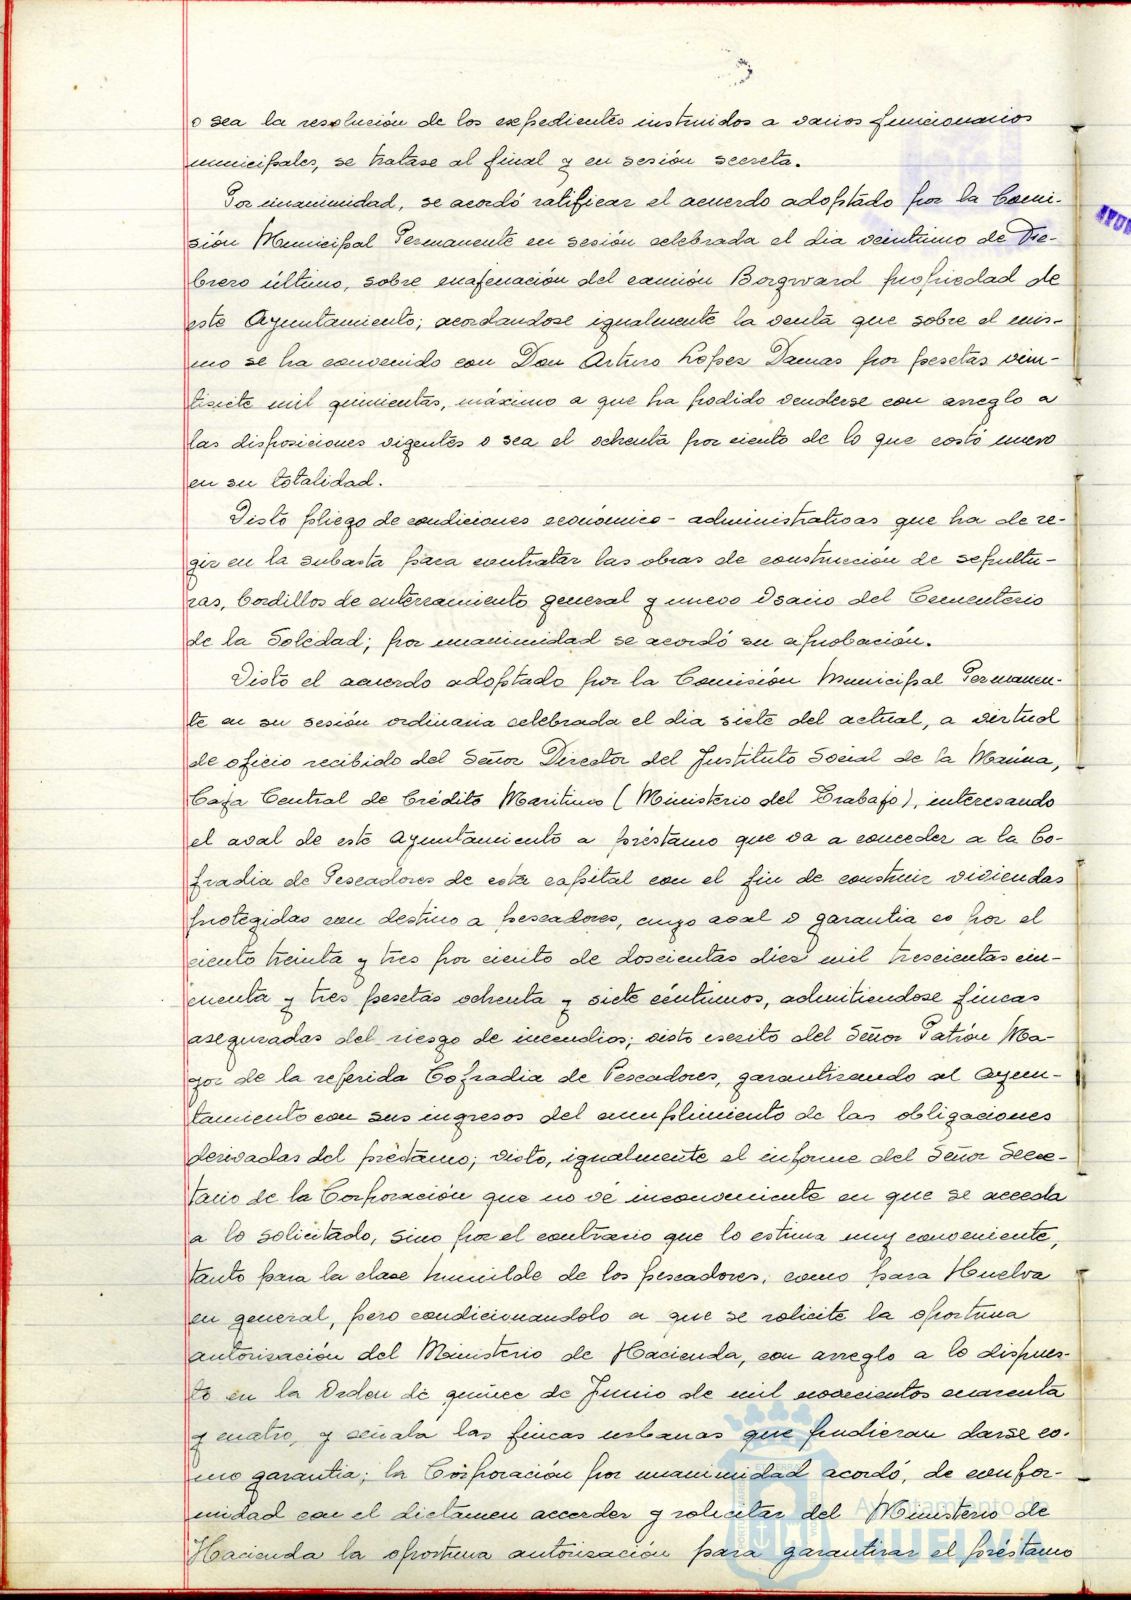 o sea la resolución de los expedientes instruidos a varios funcionarios
municipales, se tratase al final y en sesión secreta.
Por unanimidad, se acordó ratificar el acuerdo adoptado por la Comi-
sión Municipal Permanente en sesión celebrada el dia veintiuno de Fe-
brero último, sobre enajenación del camión Borgward propiedad de
este Ayuntamiento; acordandose igualmente la venta que sobre el mis-
mo se ha convenido con Don Arturo Lopez Damas por pesetas vein-
tisiete mil quinientas, máximo a que ha podido venderse con arreglo a
las disposiciones vigentes o sea el ochenta por ciento de lo que costó nuevo
en su totalidad.
Visto pliego de condiciones económico-administrativas que ha de re-
gir en la subasta para contratar las obras de construcción de sepultu-
ras, bordillos de enterramiento general y nuevo Osario del Cementerio
de la Soledad; por unanimidad se acordó su aprobación.
Visto el acuerdo adoptado por la Comisión Municipal Permanen-
te en su sesión ordinaria celebrada el dia siete del actual, a virtud
de oficio recibido del Señor Director del Instituto Social de la Marina,
Caja Central de Crédito Maritimo (Ministerio del Trabajo), interesando
el aval de este Ayuntamiento a préstamo que va a conceder a la Co-
fradia de Pescadores de esta capital con el fin de construir viviendas
protegidas con destino a pescadores, cuyo aval o garantia es por el
ciento treinta y tres por ciento de doscientas diez mil trescientas cin-
cuenta y tres pesetas ochenta y siete céntimos, admitiendose fincas
aseguradas del riesgo de incendios; visto escrito del Señor Patrón Ma-
yor de la referida Cofradia de Pescadores, garantizando al Ayun-
tamiento con sus ingresos del cumplimiento de las obligaciones
derivadas del préstamo; visto, igualmente el informe del Señor Secre-
tario de la Corporación que no vé inconveniente en que se acceda
a lo solicitado, sino por el contrario que lo estima muy conveniente,
tanto para la clase humilde de los pescadores, como para Huelva
en general, pero condicionandolo a que se solicite la oportuna
autorización del Ministerio de Hacienda, con arreglo a lo dispues-
to en la Orden de quince de Junio de mil novecientos cuarenta
y cuatro, y señala las fincas urbanas que pudieran darse co-
mo garantia; la Corporación por unanimidad acordó, de confor-
midad con el dictamen acceder y solicitar del Ministerio de
Hacienda la oportuna autorización para garantizar el préstamo
Ayuntamiento de
HUELVA